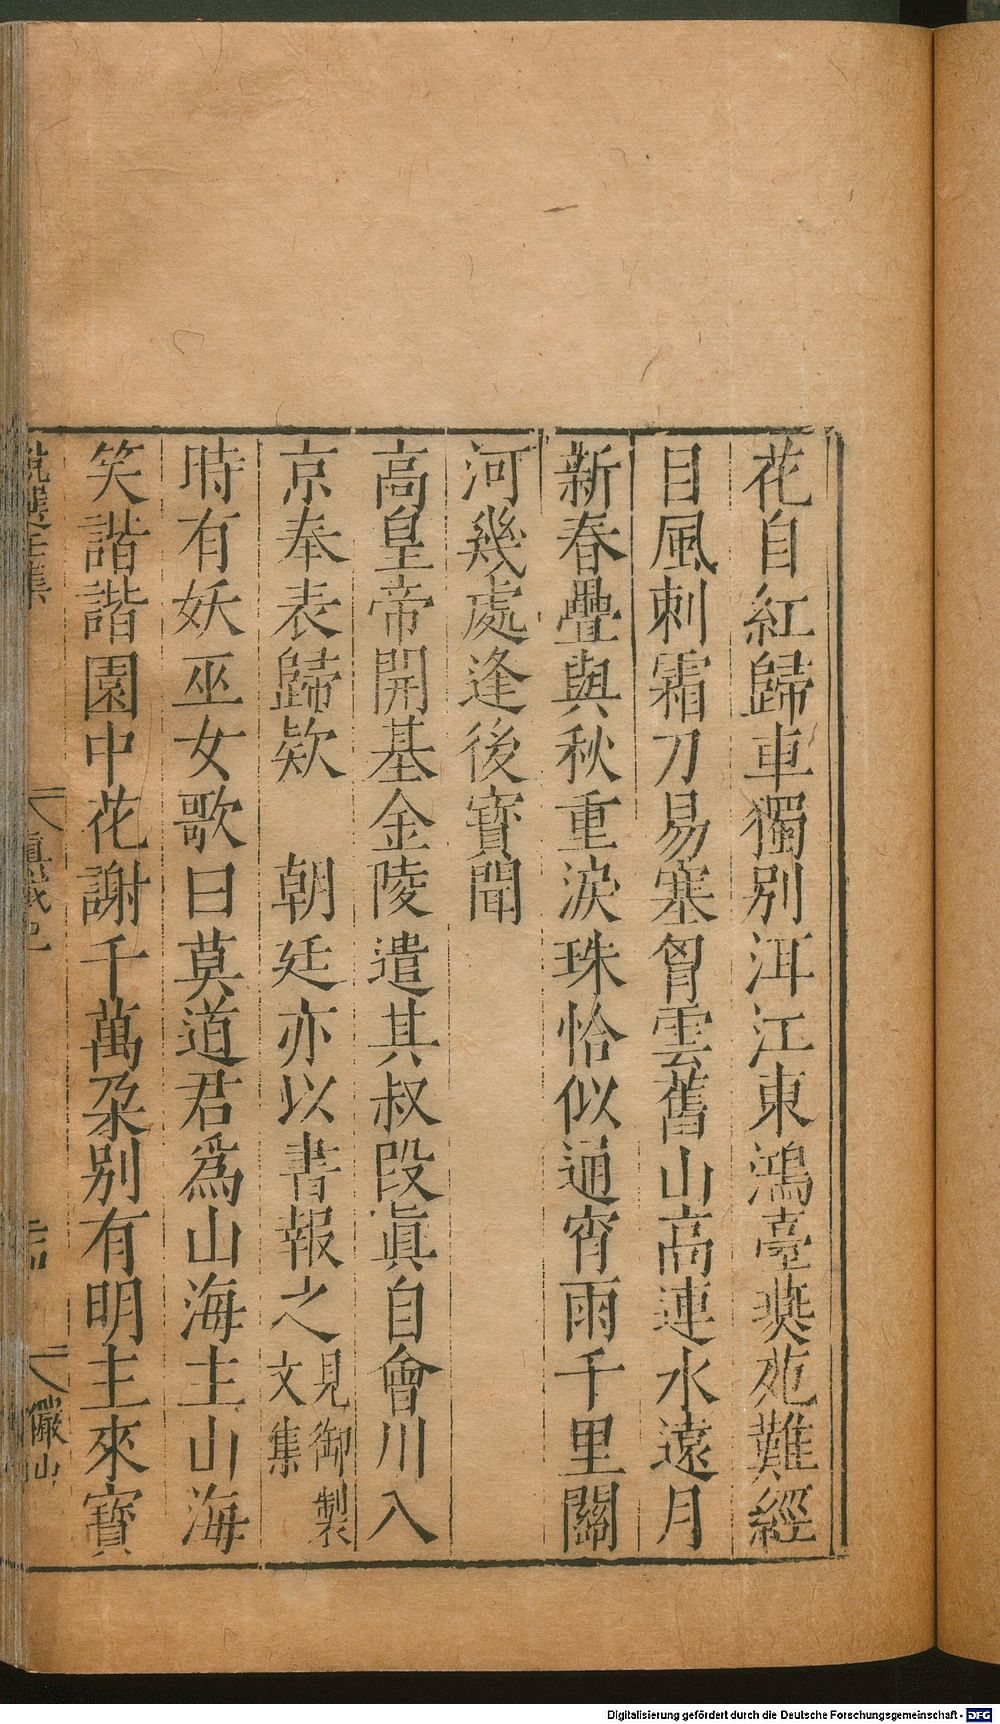 花自紅歸車獨別洱江東鴻臺燕苑難經
目風刺霜刀易塞胷雲舊山高連水遠月
新春疊與秋重淚珠恰似通宵雨千里關
河幾處逢後寳聞
高皇帝開基金陵遣其叔段眞自會川入
京奉表歸欵　朝廷亦以書報之見御製文集
時有妖巫女歌曰莫道君爲山海主山海
笑諧諧園中花謝千萬朶別有明主來寳
儼山
Digitalisierung gefördert durch die Deutsche Forschungsgemeinschaft - DFG